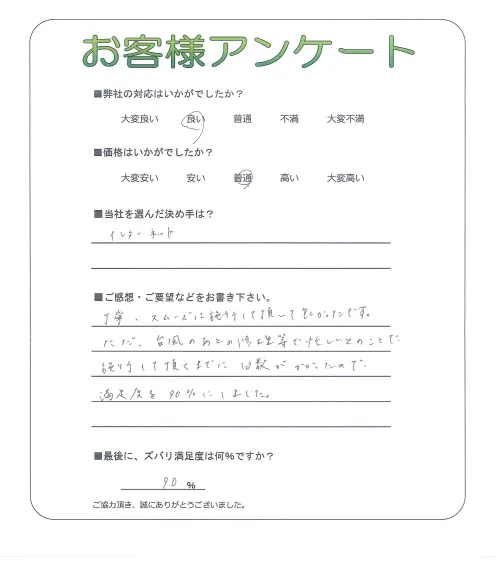 お客様アンケート
■弊社の対応はいかがでしたか?
大変良い 良い 普通 不満 大変不満
■価格はいかがでしたか?
大変安い 安い 普通 高い 大変高い
■当社を選んだ決め手は?
インターネット
■ご感想・ご要望などをお書き下さい。
丁寧、スムーズに施行して頂いて良かったです。
ただ、台風のあとの修理等で忙しいとのことで
施行して頂くまでに日数がかかったので、
満足度を90%にしました。
■最後に、ズバリ満足度は何%ですか?
90 %
ご協力頂き、誠にありがとうございました。